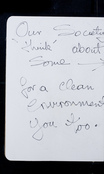 Our Societies
think about
Some
for a clean
Environment
you too.